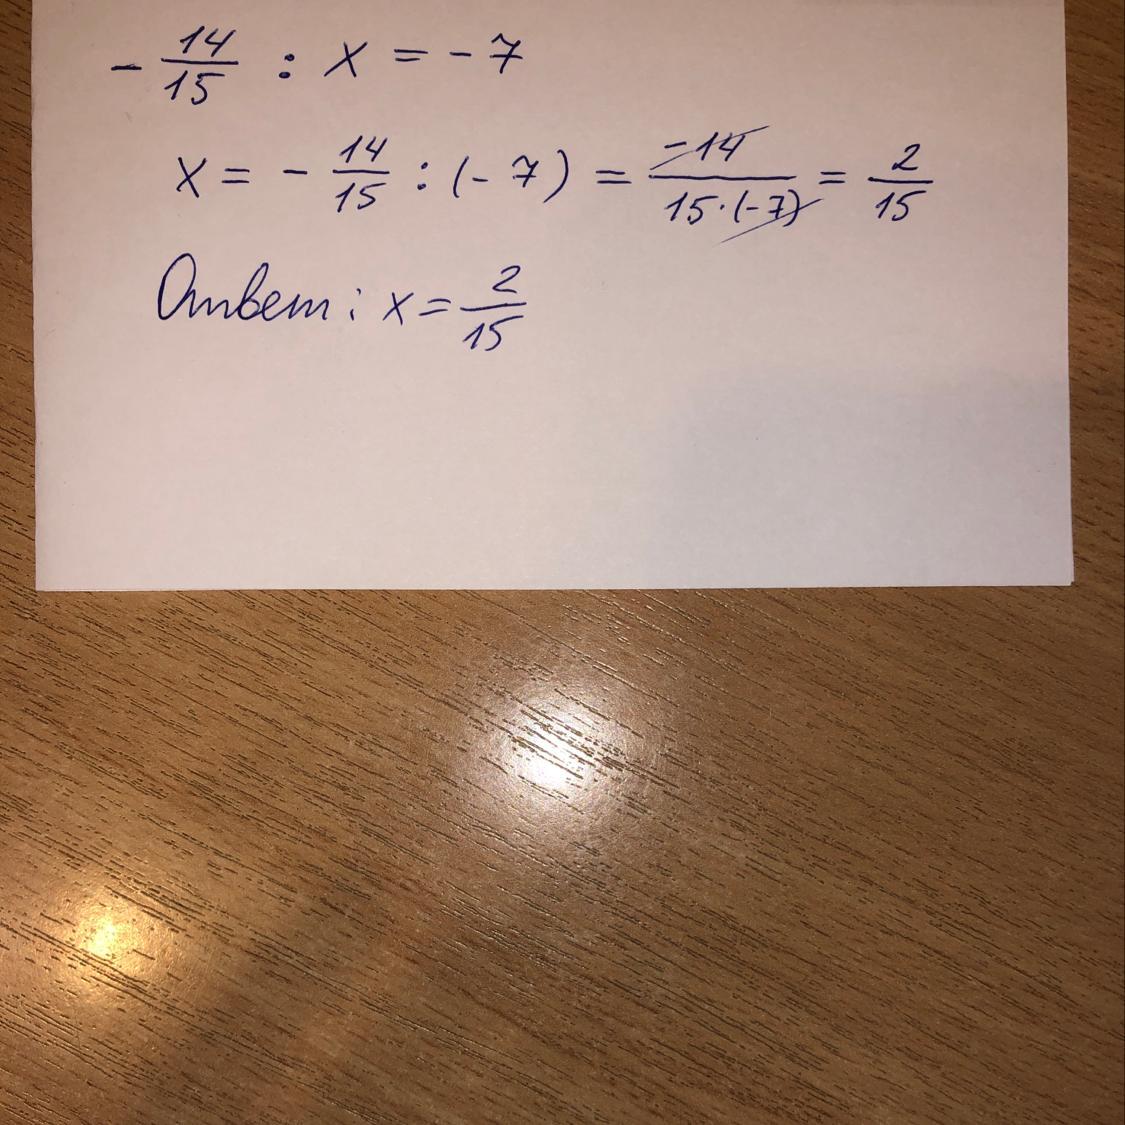 - 14/15 : x = - 7
x = - 14/15 : (- 7) = -14/15·(-7) = 2/15
Ответ: x = 2/15